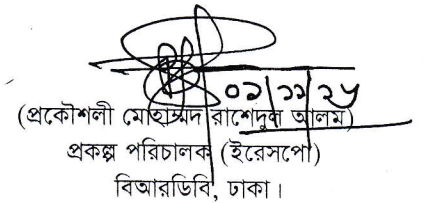 ০১/১১/২৫
(প্রকৌশলী মোহাম্মদ রাশেদুল আলম)
প্রকল্প পরিচালক (ইরেসপো)
বিআরডিবি, ঢাকা।